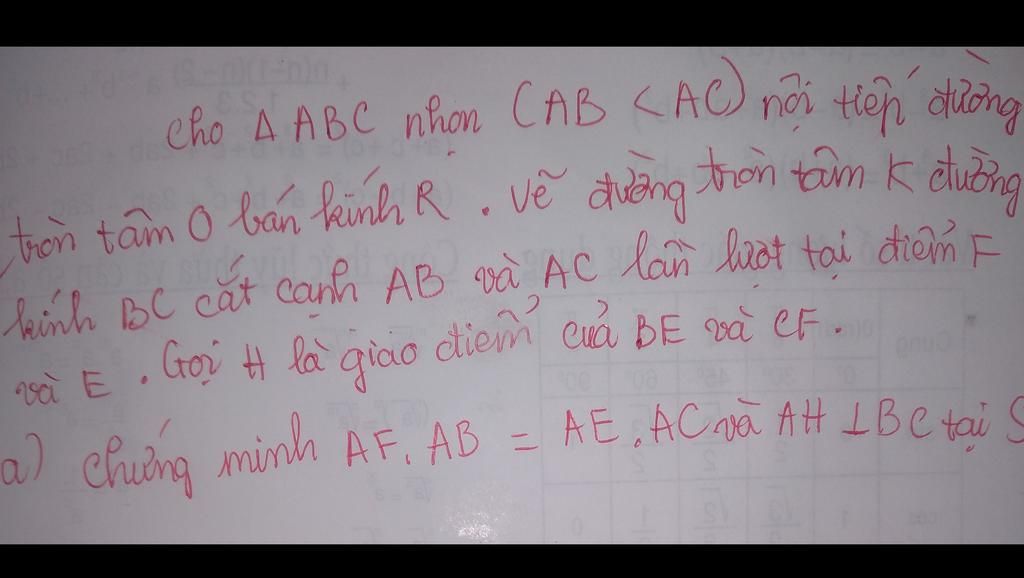 Cho Δ ABC nhọn (AB < AC) nội tiếp đường
tròn tâm O bán kính R. Vẽ đường tròn tâm K đường
kính BC cắt cạnh AB và AC lần lượt tại điểm F
và E. Gọi H là giao điểm của BE và CF.
a) Chứng minh AF. AB = AE. AC và AH ⊥ BC tại S